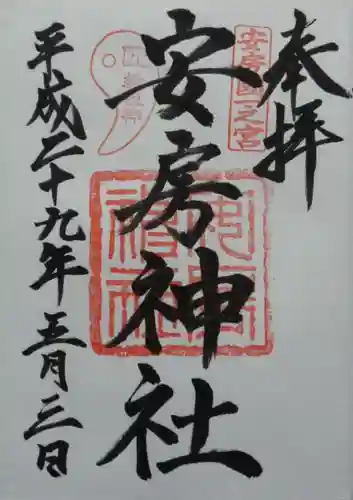 奉拝
安房國一之宮
安房神社
安房神社
平成二十九年正月三日